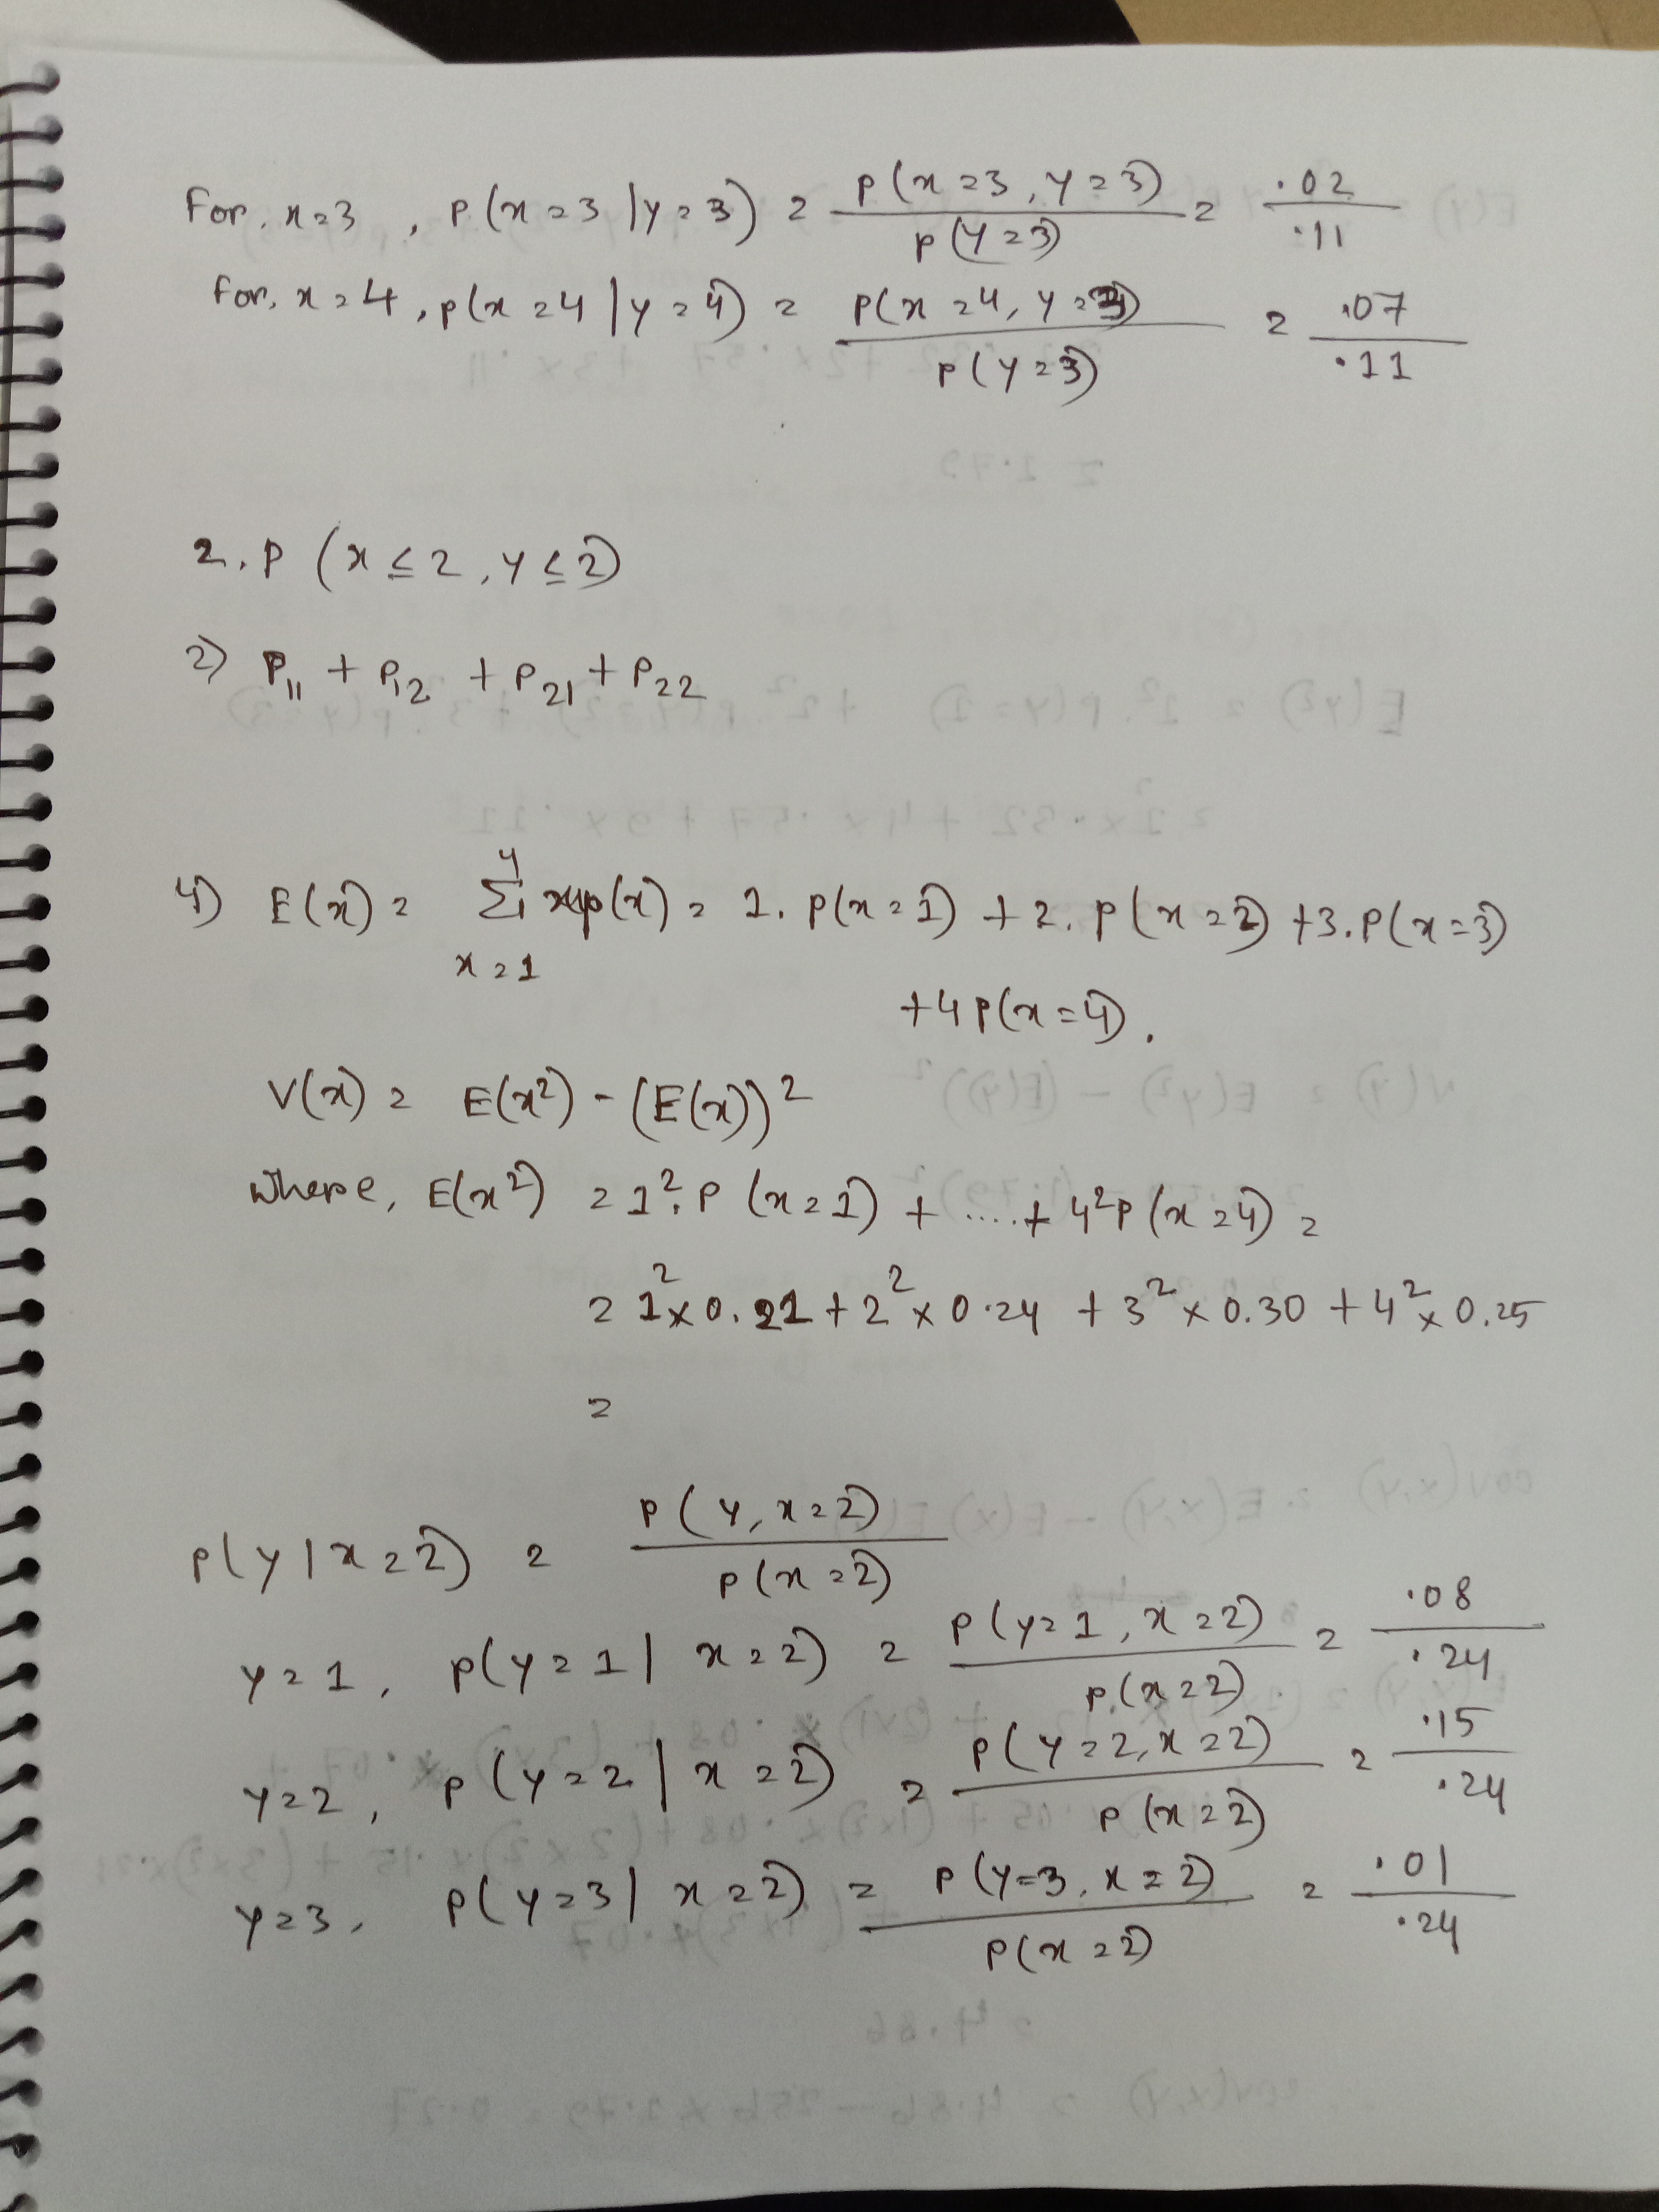 For, x=3, P(x=3|y=3) = P(x=3, y=3) / P(y=3) = .02 / .11
For, x=4, P(x=4|y=4) = P(x=4, y=3) / P(y=3) = .07 / .11
2. P (x ≤ 2, y ≤ 2)
2) P₁₁ + P₁₂ + P₂₁ + P₂₂
4) E(x) = Σ_{x=1}^{4} x p(x) = 1. P(x=1) + 2. P(x=2) + 3. P(x=3)
+4 P(x=4).
V(x) = E(x²) - (E(x))²
where, E(x²) = 1². P (x=1) + ....+ 4² P (x=4) =
= 1² × 0.21 + 2² × 0.24 + 3² × 0.30 + 4² × 0.25
=
P(y|x=2) = P(y, x=2) / P(x=2)
y=1, P(y=1| x=2) = P(y=1, x=2) / P(x=2) = .08 / .24
y=2, P(y=2| x=2) = P(y=2, x=2) / P(x=2) = .15 / .24
y=3, P(y=3| x=2) = P(y=3, x=2) / P(x=2) = .01 / .24